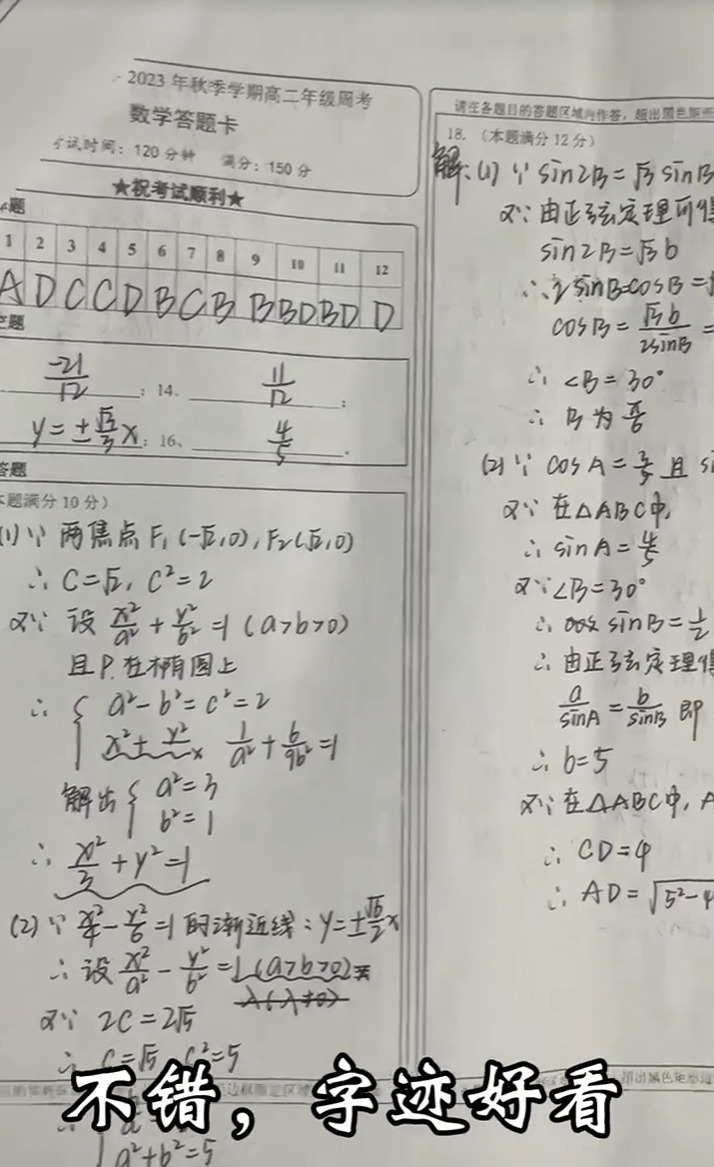 2023 年秋季学期高二年级周考
数学答题卡
考试时间：120 分钟 满分：150 分
★祝考试顺利★
题
1 2 3 4 5 6 7 8 9 10 11 12
A D C C D B C B B BD BD D
空题
-21/12 ；14、 11/12 ；
y=±√3/3x ；16、 4/5 .
答题
本题满分 10 分）
(1)∵ 两焦点 F₁(-√2,0), F₂(√2,0)
∴ C=√2, C²=2
又∵ 设 x²/a² + y²/b² =1 (a>b>0)
且P.在椭圆上
∴ { a²-b²=c²=2
x²+ y² 1/a² + 6/9b² =1
解出 { a²=3
b²=1
∴ x²/3 + y²=1
(2)∵ x²/4 - y²/6 =1 的渐近线：y=±√6/2x
∴ 设 x²/a² - y²/b² =1 (a>b>0)
λ(λ≠0)
又∵ 2C=2√5
∴ C=√5 C²=5
a²+b²=5
请在各题目的答题区域内作答，超出黑色矩
18.（本题满分 12 分）
解：(1)∵ sin2B=√3 sinB
又∵ 由正弦定理可得
sin2B=√3b
∴ 2sinBcosB=
cosB= √3b/2sinB =
∴ ∠B=30°
∴ B为 π/6
(2)∵ cosA= 3/5 且 si
又∵ 在△ABC中,
∴ sinA= 4/5
又∵∠B=30°
∴ sinB= 1/2
∴ 由正弦定理得
a/sinA = b/sinB 即
∴ b=5
又∵ 在△ABC中, A
∴ CD=4
∴ AD=√5²-4
不错，字迹好看